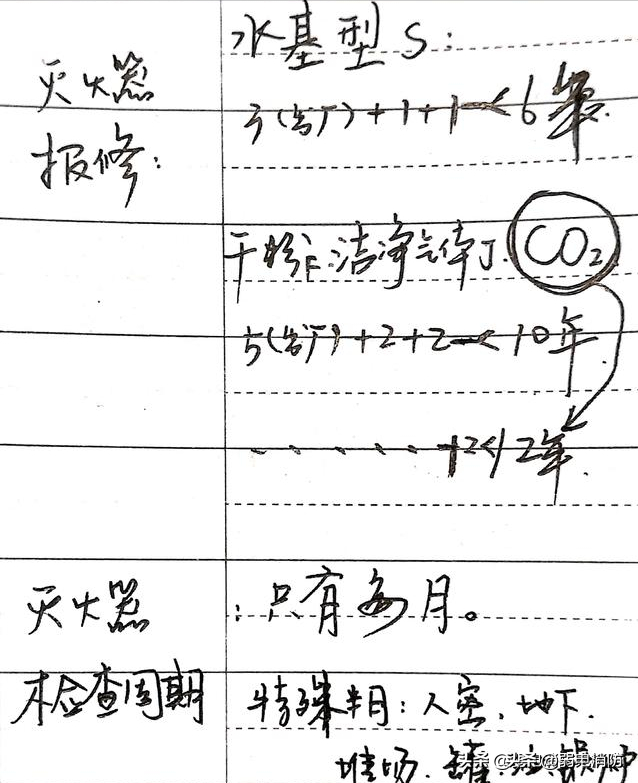 水基型 S:
灭火器
3(出厂)+1+1—<6年.
报修:
干粉F.洁净气体J.CO2
5(出厂)+2+2—<10年
......+2<12年.
灭火器:只有每月。
检查周期 特殊半月:人密、地下.
堆场.罐.
头条 @弱电消防